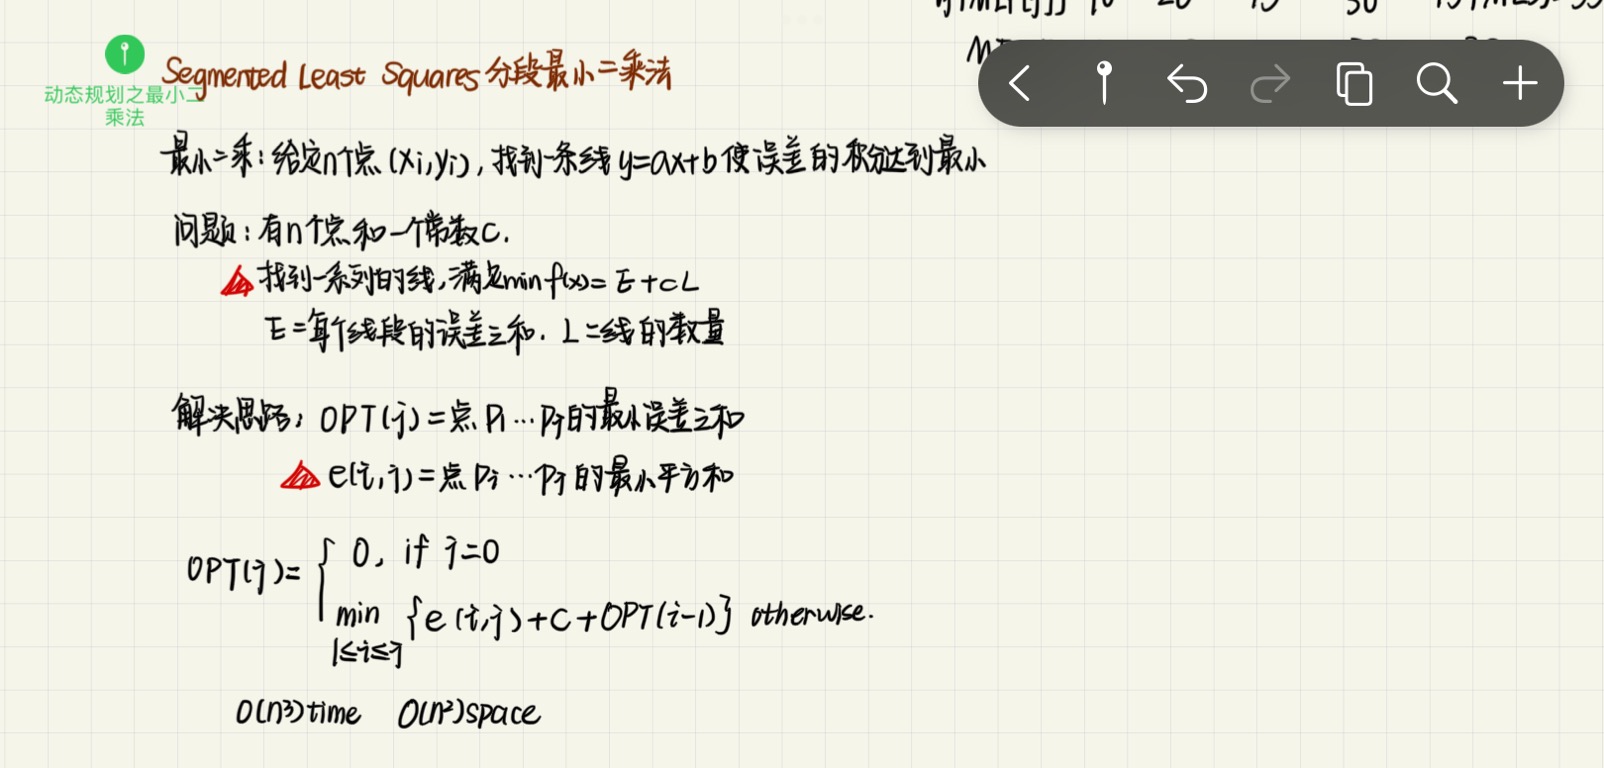 Segmented Least Squares 分段最小二乘法
动态规划之最小二
乘法
最小二乘:给定n个点(xi,yi),找到一条线y=ax+b使误差的积分达到最小
问题:有n个点和一个常数c.
找到一系列的线,满足minf(x)=E+cL
E=每个线段的误差之和. L=线的数量
解决思路: OPT(j)=点P1…Pj的最小误差之和
e(i,j)=点Pi…Pj的最小平方和
OPT(j)= { 0, if j=0
min {e(i,j)+C+OPT(i-1)} otherwise.
1≤i≤j
O(n³)time O(n²)space